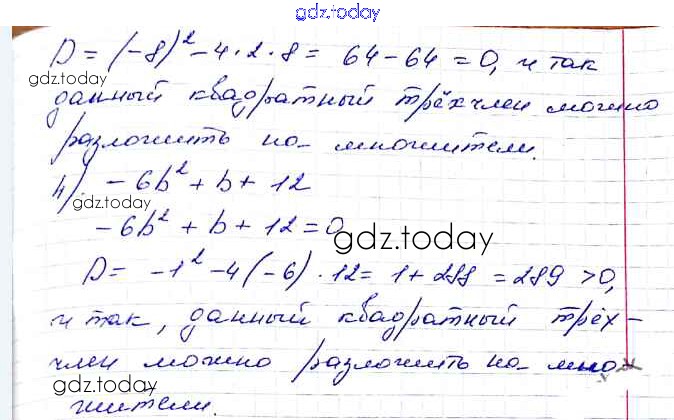 gdz.today
D = (-8)² - 4 · 2 · 8 = 64 - 64 = 0, и так
gdz.today
данный квадратный трёхчлен можно
разложить на множители.
4) -6b² + b + 12
gdz.today
-6b² + b + 12 = 0
gdz.today
D = -1² - 4(-6) · 12 = 1 + 288 = 289 > 0,
и так, данный квадратный трёх-
член можно разложить на мно-
gdz.today
жители.